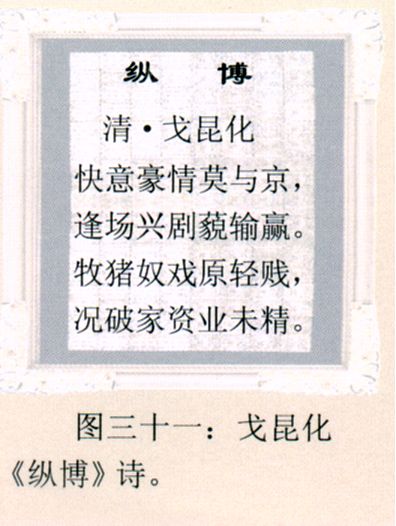 纵 博
清·戈昆化
快意豪情莫与京，
逢场兴剧藐输赢。
牧猪奴戏原轻贱，
况破家资业未精。
图三十一：戈昆化
《纵博》诗。